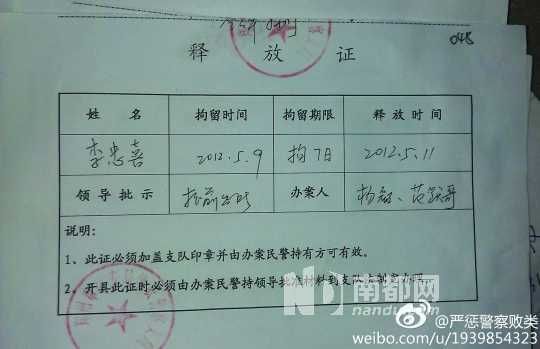 048
释 放 证
姓 名 拘留时间 拘留期限 释放时间
李忠喜 2012.5.9 拘7日 2012.5.11
领导批示 提前出所 办案人 杨磊、范跃哥
说明：
1、此证必须加盖支队印章并由办案民警持有方可有效。
2、开具此证时必须由办案民警持领导批准材料到支队法制室办理。
南都网
nandu.com
@严惩警察败类
weibo.com/u/1939854323